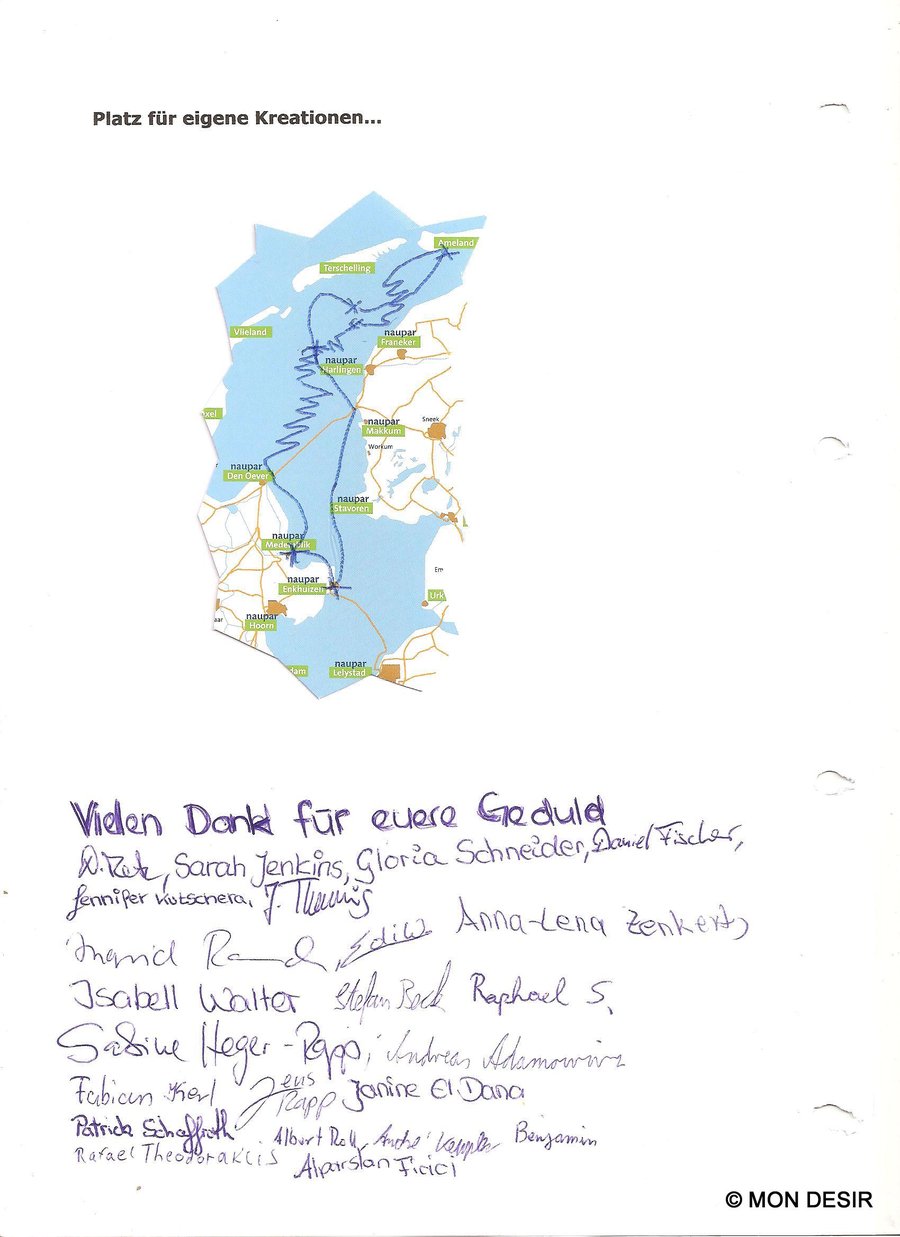 Platz für eigene Kreationen...
Ameland
Terschelling
Vlieland
naupar
Franeker
naupar
Harlingen
xel
naupar
Makkum
Sneek
Workum
naupar
Den Oever
naupar
Stavoren
naupar
Medemblik
naupar
Enkhuizen
Em
Urk
aar
naupar
Hoorn
dam
naupar
Lelystad
Vielen Dank für euere Geduld
Sarah Jenkins, Gloria Schneider, Daniel Fischer,
Jennifer Kutschera,
Ingrid Anna-Lena Zenkert,
Isabell Walter Stefan Beck Raphael S.
Sabine Heger-Rapp, Andreas Adamowicz
Fabian Kerl Jens Rapp Janine El Dana
Patrick Schaffroth Albert Roll, André Benjamin
Rafael Theodorakis Alparslan Firici
© MON DESIR